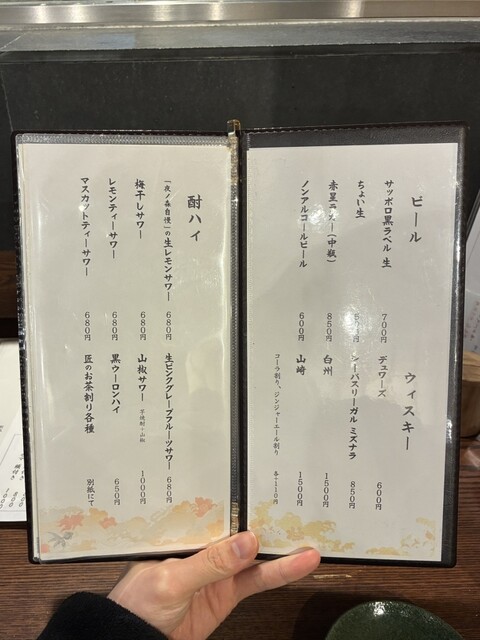 ビール
サッポロ黒ラベル 生 700円
ちょい生
赤星ラガー(中瓶) 850円
ノンアルコールビール 600円
ウィスキー
デュワーズ 600円
シーバスリーガル ミズナラ 850円
白州 1500円
山崎 1500円
コーラ割り、ジンジャーエール割り 各+110円
酎ハイ
「夜ノ森自慢」の生レモンサワー 680円
梅干しサワー 680円
レモンティーサワー 680円
マスカットティーサワー 680円
生ピンクグレープフルーツサワー 680円
山椒サワー 芋焼酎+山椒 1000円
黒ウーロンハイ 650円
匠のお茶割り各種 別紙にて